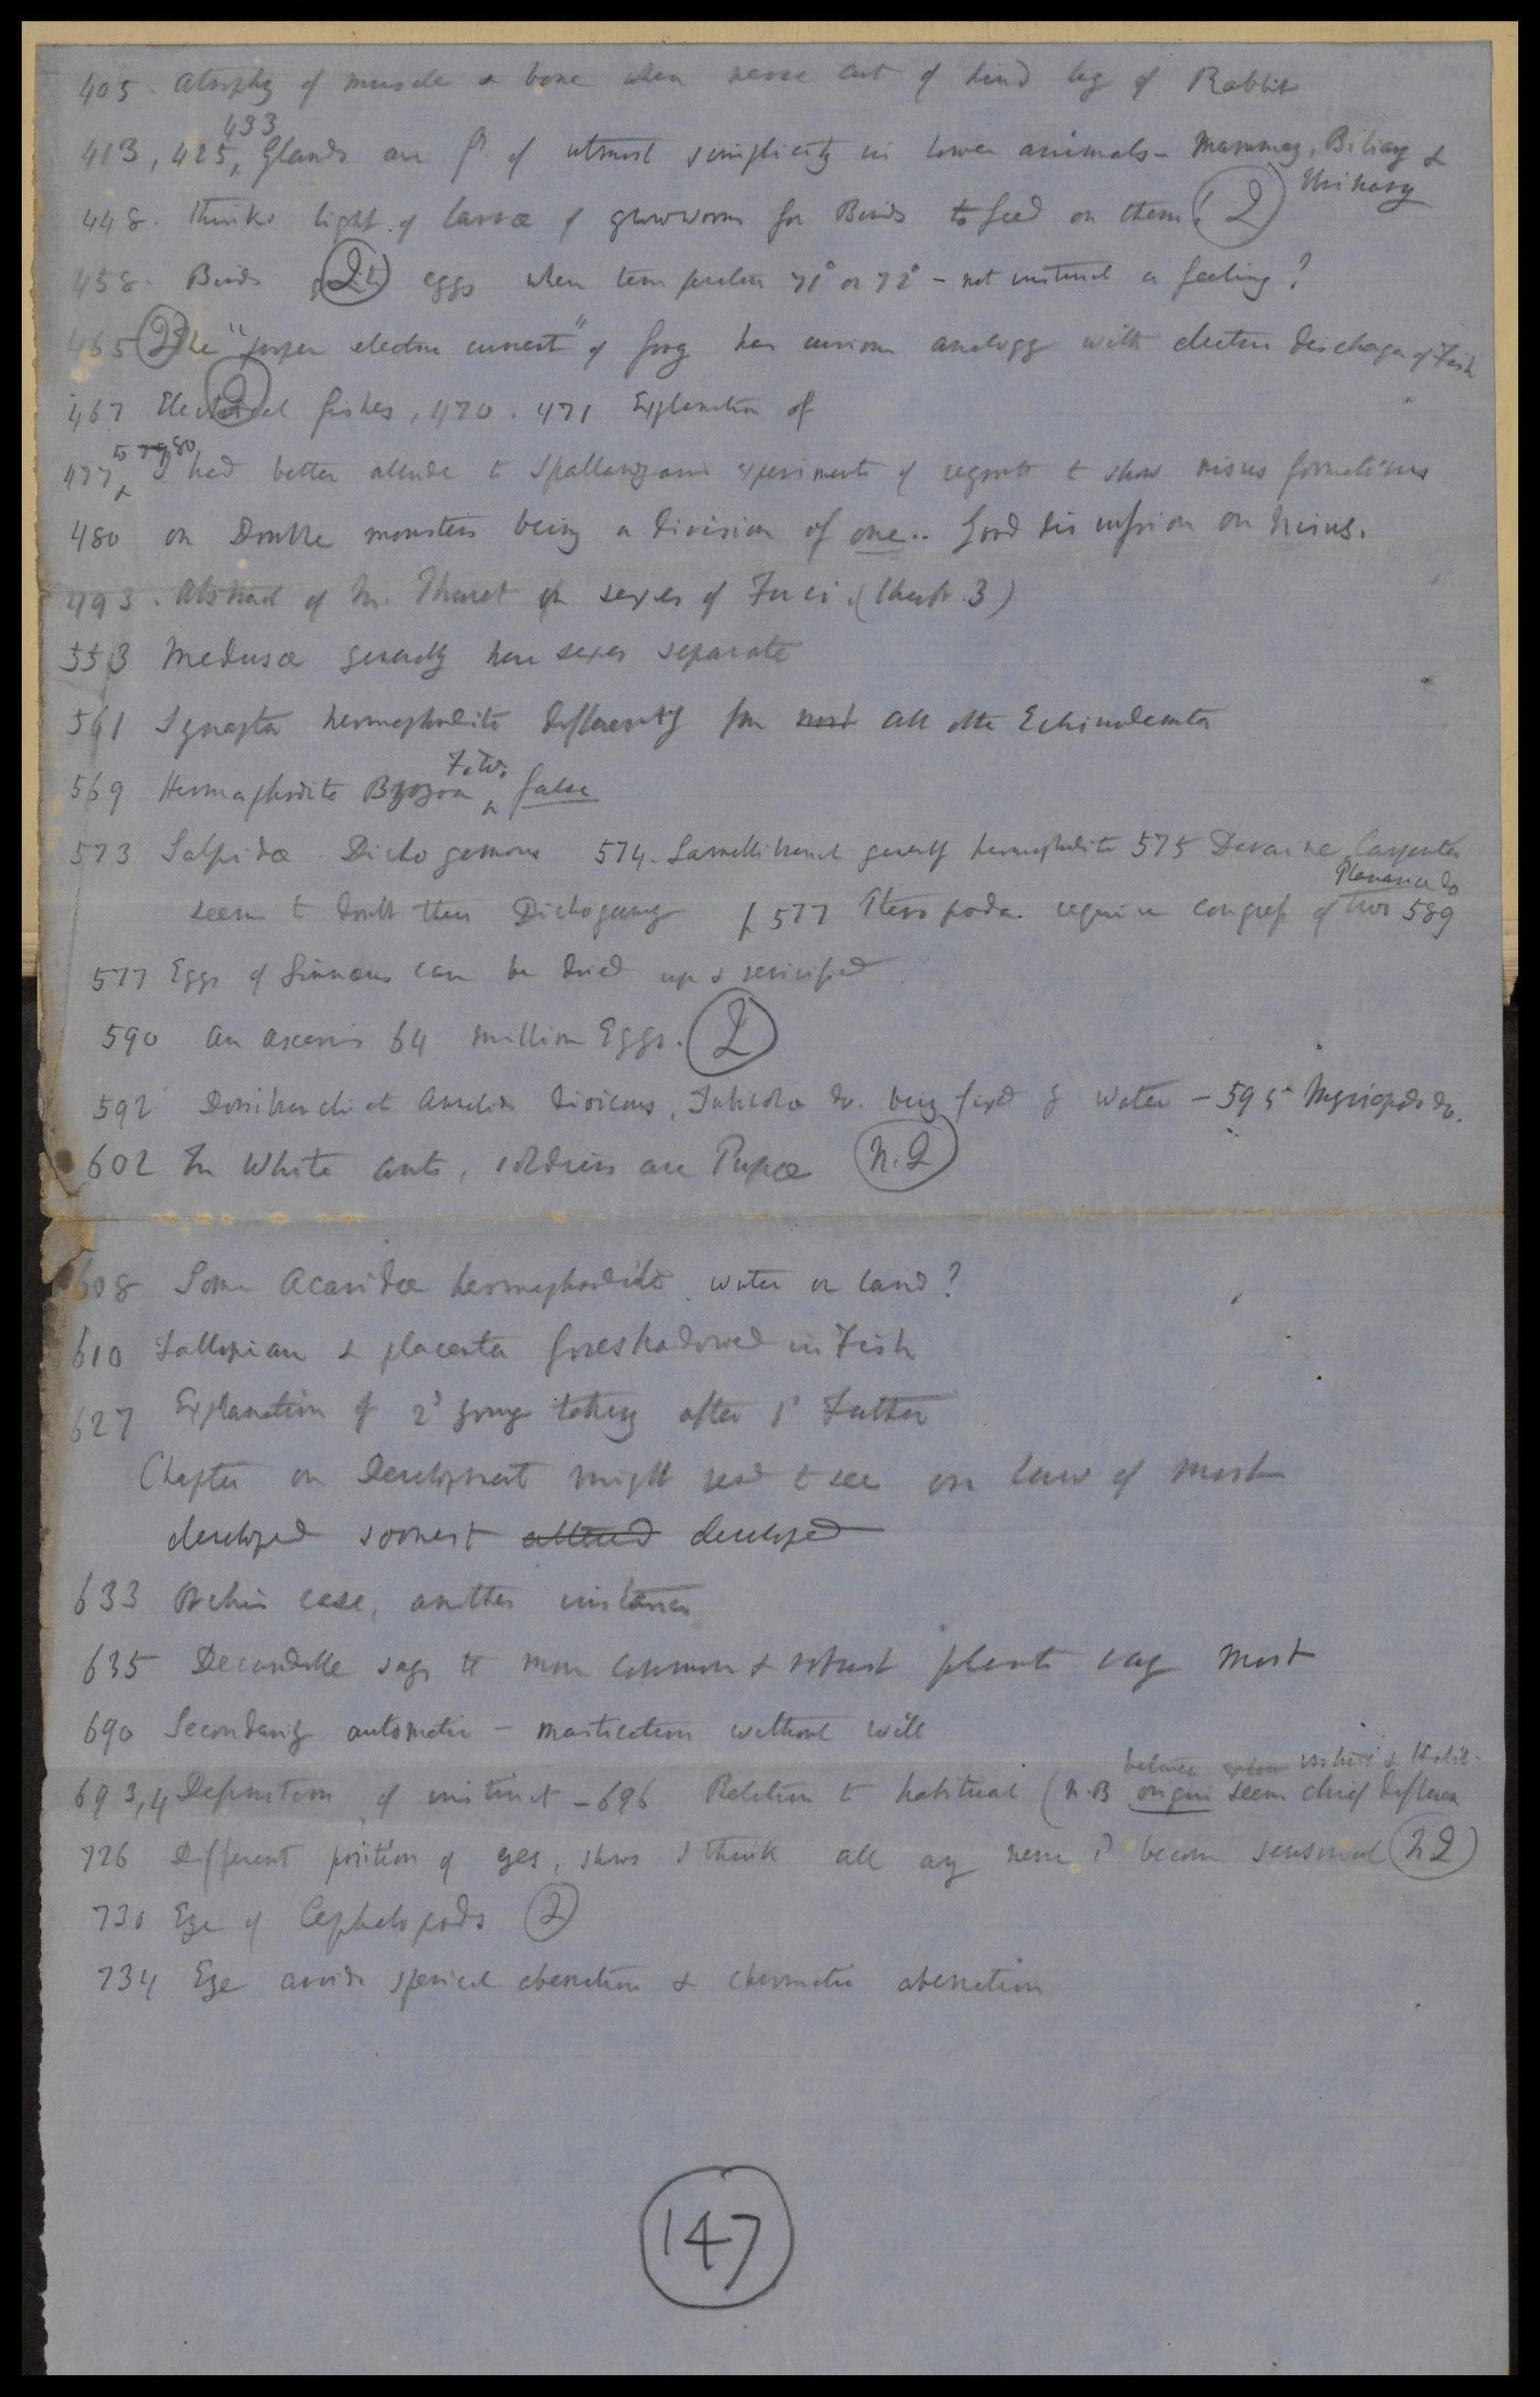 405. Atrophy of muscle & bone when nerve cut of hind leg of Rabbit
433
413, 425, Glands are fd. of utmost simplicity in lower animals – Mammary, Biliary &
Urinary
448. Thinks light of larvae of glowworm for Birds to feed on them! (2)
458. Birds eggs when temperature 71° or 72° – not instinct a feeling?
465 (2) The "proper electric current" of frog has curious analogy with electric discharge of Fish
467 Electrical fishes, 470. 471 Explanation of
to 480
477, I had better allude to Spallanzani experiments of regrowth to show nisus formativus
480 on Double monsters being a division of one.. Good discussion on nisus.
493. Abstract of M. Thuret on sexes of Fuci (Chapt. 3)
553 Medusae generally have sexes separate
561 Synapta hermaphrodite differently from most all other Echinodermata
F. to.
569 Hermaphrodite Bryozoa, false
573 Salpidae Dichogamous 574. Lamellibranch generally hermaphrodite 575 Davaine, Carpenter
Planariae do
seem to doubt their Dichogamy / 577 Pteropoda. require congress of two 589
577 Eggs of Limnaeus can be dried up & revivified
590 An ascaris 64 million Eggs. (2)
592 Dorsibranchiat Annelids dioicous, Tubicolae do. being fixed of water – 595 Myriapods do.
602 In White ants, soldiers are Pupae (n.2)
608 Some Acaridae hermaphrodite water or land?
610 Fallopian & placenta foreshadowed in Fish
627 Explanation of 2d young taking after 1st Father
Chapter on Development might read to see on law of most
developed soonest altered developed
633 case, another instance
635 Decandolle says the more common & robust plants vary most
690 Secondarily automatic – mastication without will
between instinct & Habit.
693,4 Definition of instinct – 696 Relation to habitual (N.B origin seem chief difference
726 Different position of eyes, shows I think all any nerve cd become sensional (n 2)
730 Eye of Cephalopods (2)
734 Eye avoids sperical aberration & chromatic aberration
147